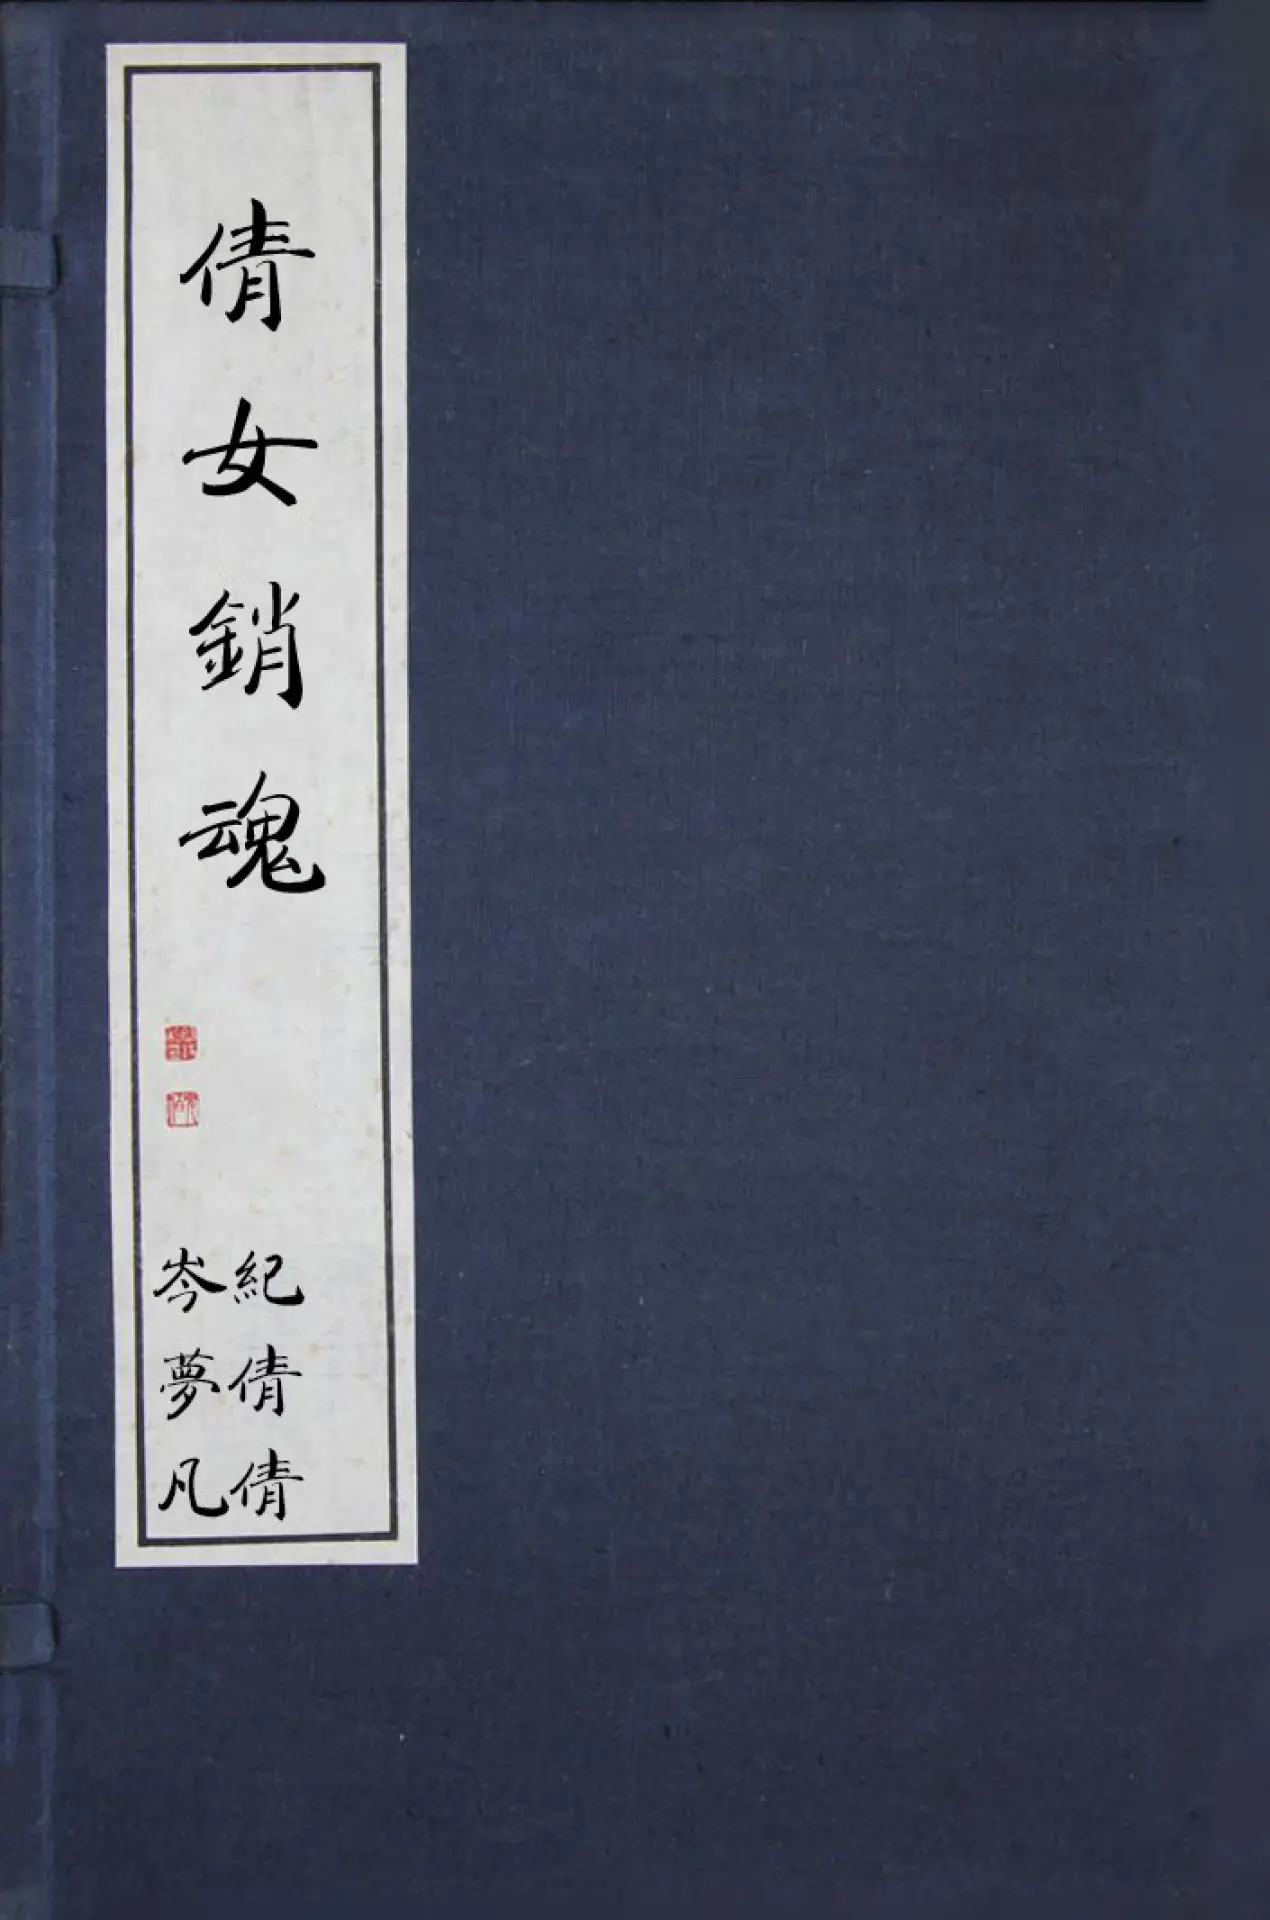 倩女銷魂
紀倩倩
岑夢凡